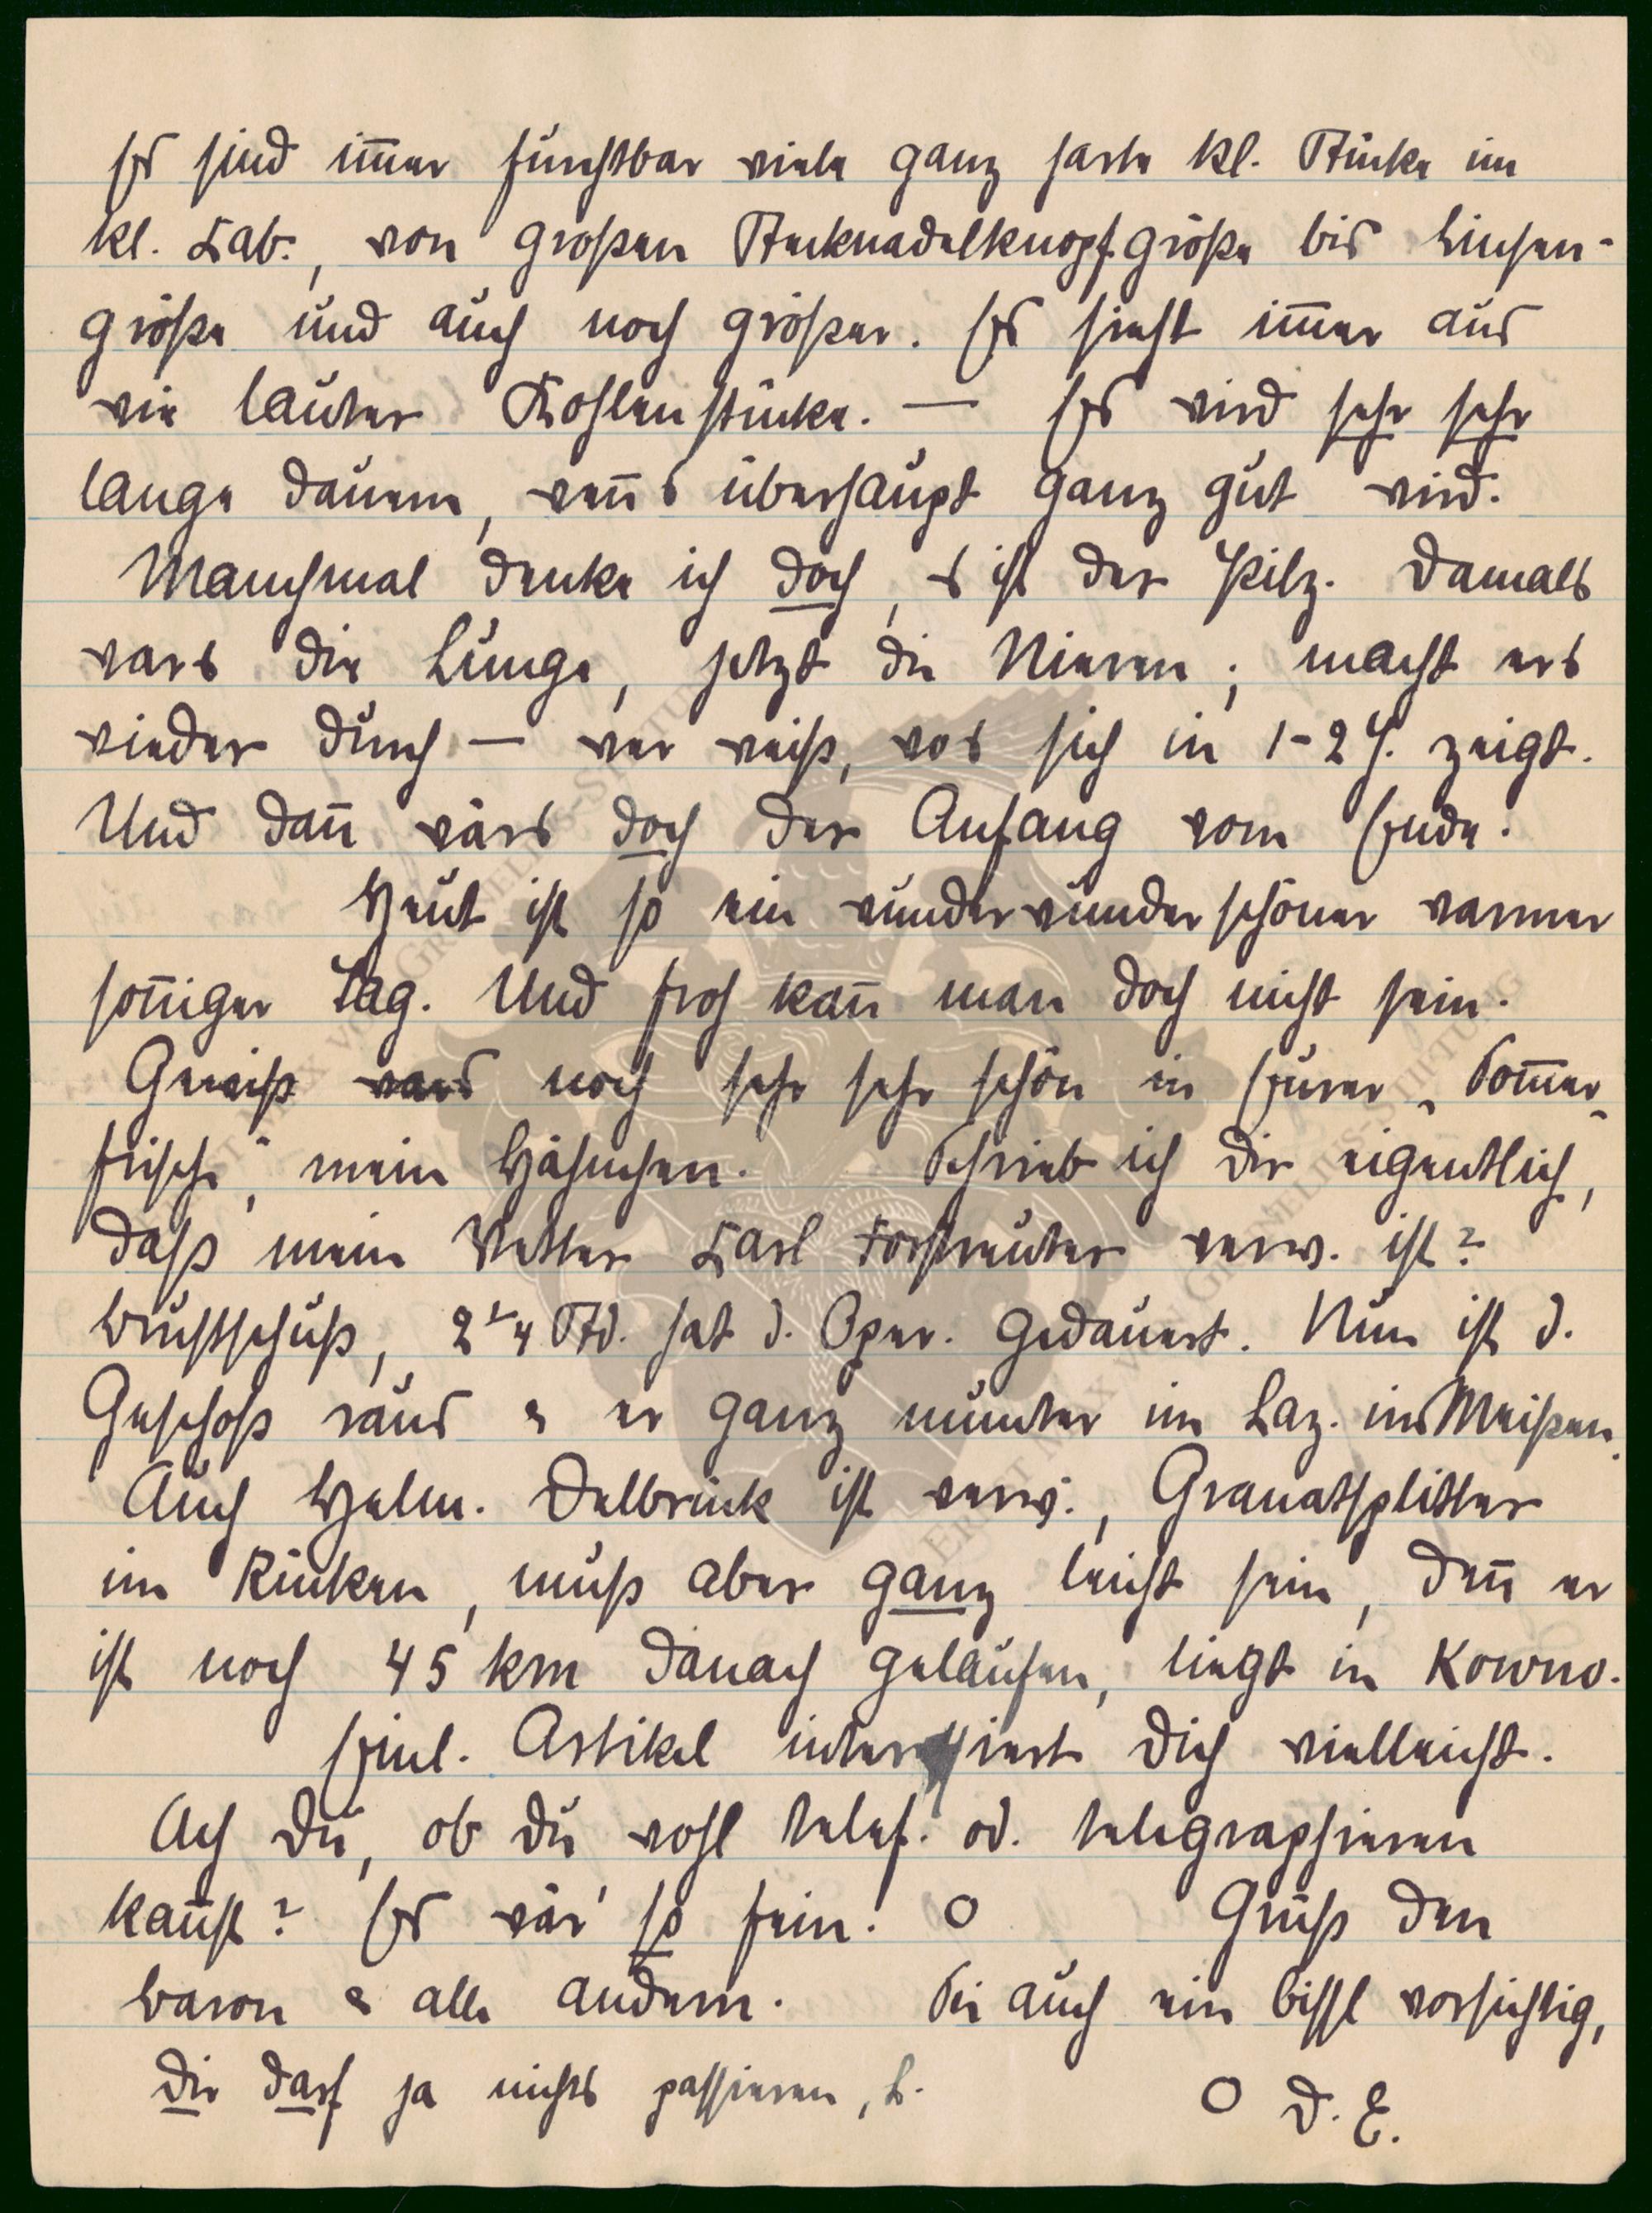 Es sind im̄er furchtbar viele ganz harte kl. Stücke im
kl. Lab., von großen Stecknadelknopfgröße bis Linsen-
größe und auch noch größer. Es sieht im̄er aus
wie lauter Kohlenstücke. — Es wird sehr sehr
lange dauern, wen̄s überhaupt ganz gut wird.
Manchmal denke ich doch, s ist der Pilz. Damals
wars die Lunge, jetzt die Nieren; macht ers
wieder durch — wer weiß, wos sich in 1-2 J. zeigt.
Und dan̄ wärs doch der Anfang vom Ende.
Heut ist so ein wunderwunderschöner warmer
son̄iger Tag. Und froh kan̄ man doch nicht sein.
Gewiß wars noch sehr sehr schön in Eurer „Som̄er-
frische", mein Häschen. Schrieb ich Dir eigentlich,
daß mein Vetter Karl Forstreuter verw. ist?
Brustschuß, 2 1/4 Std. hat d. Oper. gedauert. Nun ist d.
Geschoß raus & er ganz munter im Laz. in Meißen.
Auch Helm. Delbrück ist verw., Granatsplitter
im Rücken, muß aber ganz leicht sein, den̄ er
ist noch 45 km danach gelaufen, liegt in Kowno.
Einl. Artikel interessiert Dich vielleicht.
Ach Du, ob Du wohl telef. od. telegraphieren
kan̄st? Es wär' so fein! O Grüß den
Baron & alle andern. Sei auch ein bissl vorsichtig,
Dir darf ja nichts passieren, L.
O D. E.
ERERT MAX VON GRÜNELIUS-STIFTUNG